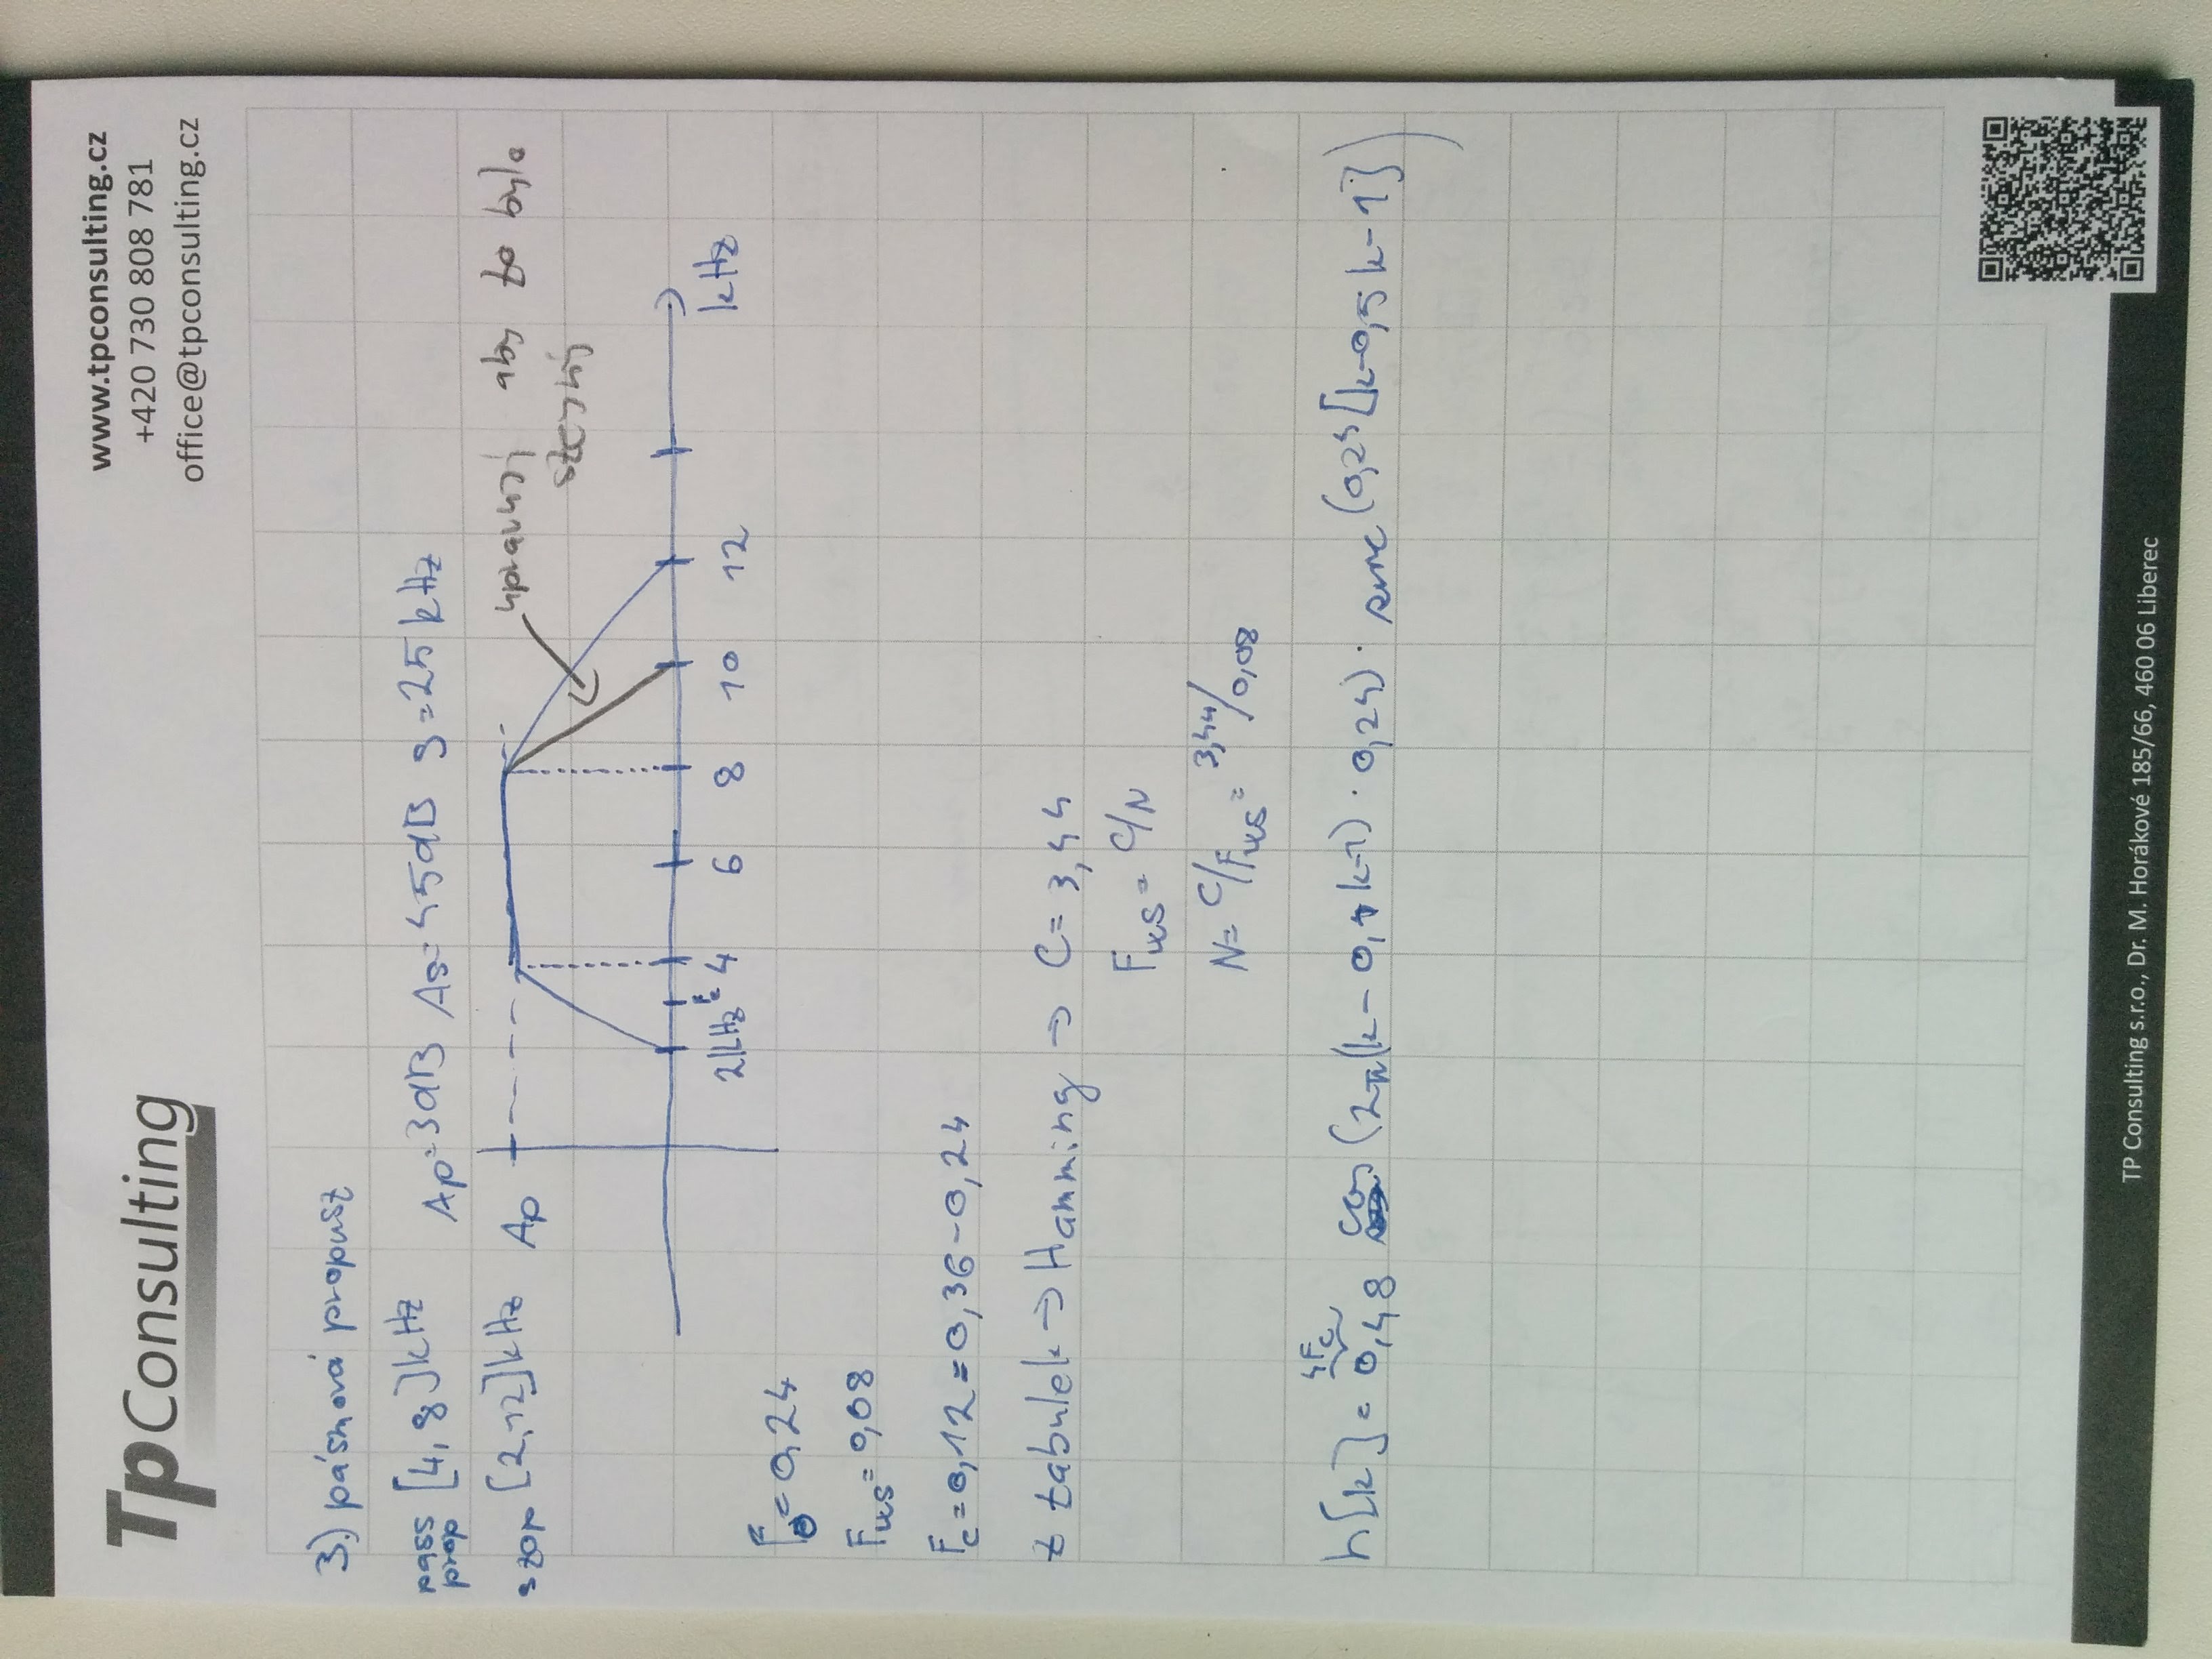 TpConsulting
www.tpconsulting.cz
+420 730 808 781
office@tpconsulting.cz
3) pásmová propust
pass [4, 8] kHz Ap=3dB As=45dB S=25kHz
prop
stop [2, 12] kHz Ap upravný aby to bylo
stejný
2kHz Fc 4 6 8 10 12 kHz
F0=0,24
Fws=0,08
Fc=0,12=0,36-0,24
z tabulek → Hamming → C=3,44
Fws = C/N
N= C/Fws = 3,44/0,08
4Fc
h[k] = 0,48 cos (2π(k - 0, k-1) · 0,24) · sinc (0,24[k-0,5k-1])
TP Consulting s.r.o., Dr. M. Horákové 185/66, 460 06 Liberec